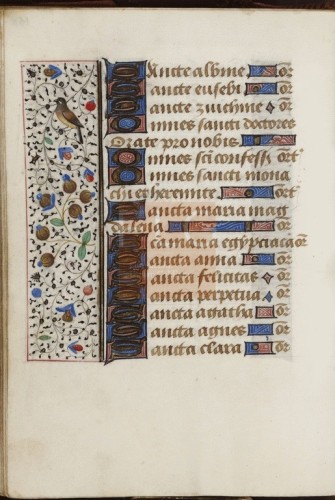 Sancte albine or
Sancte eusebi or
Sancte zuichine or
Omnes sancti doctores
Orate pro nobis
Omnes sci confess ort
Omnes sancti mona
chi et heremite ort
Sancta maria mag
dalena
Sca maria egypciaca or
Sancta anna or
Sancta felicitas or
Sancta perpetua or
Sancta agatha or
Sancta agnes or
Sancta clara or